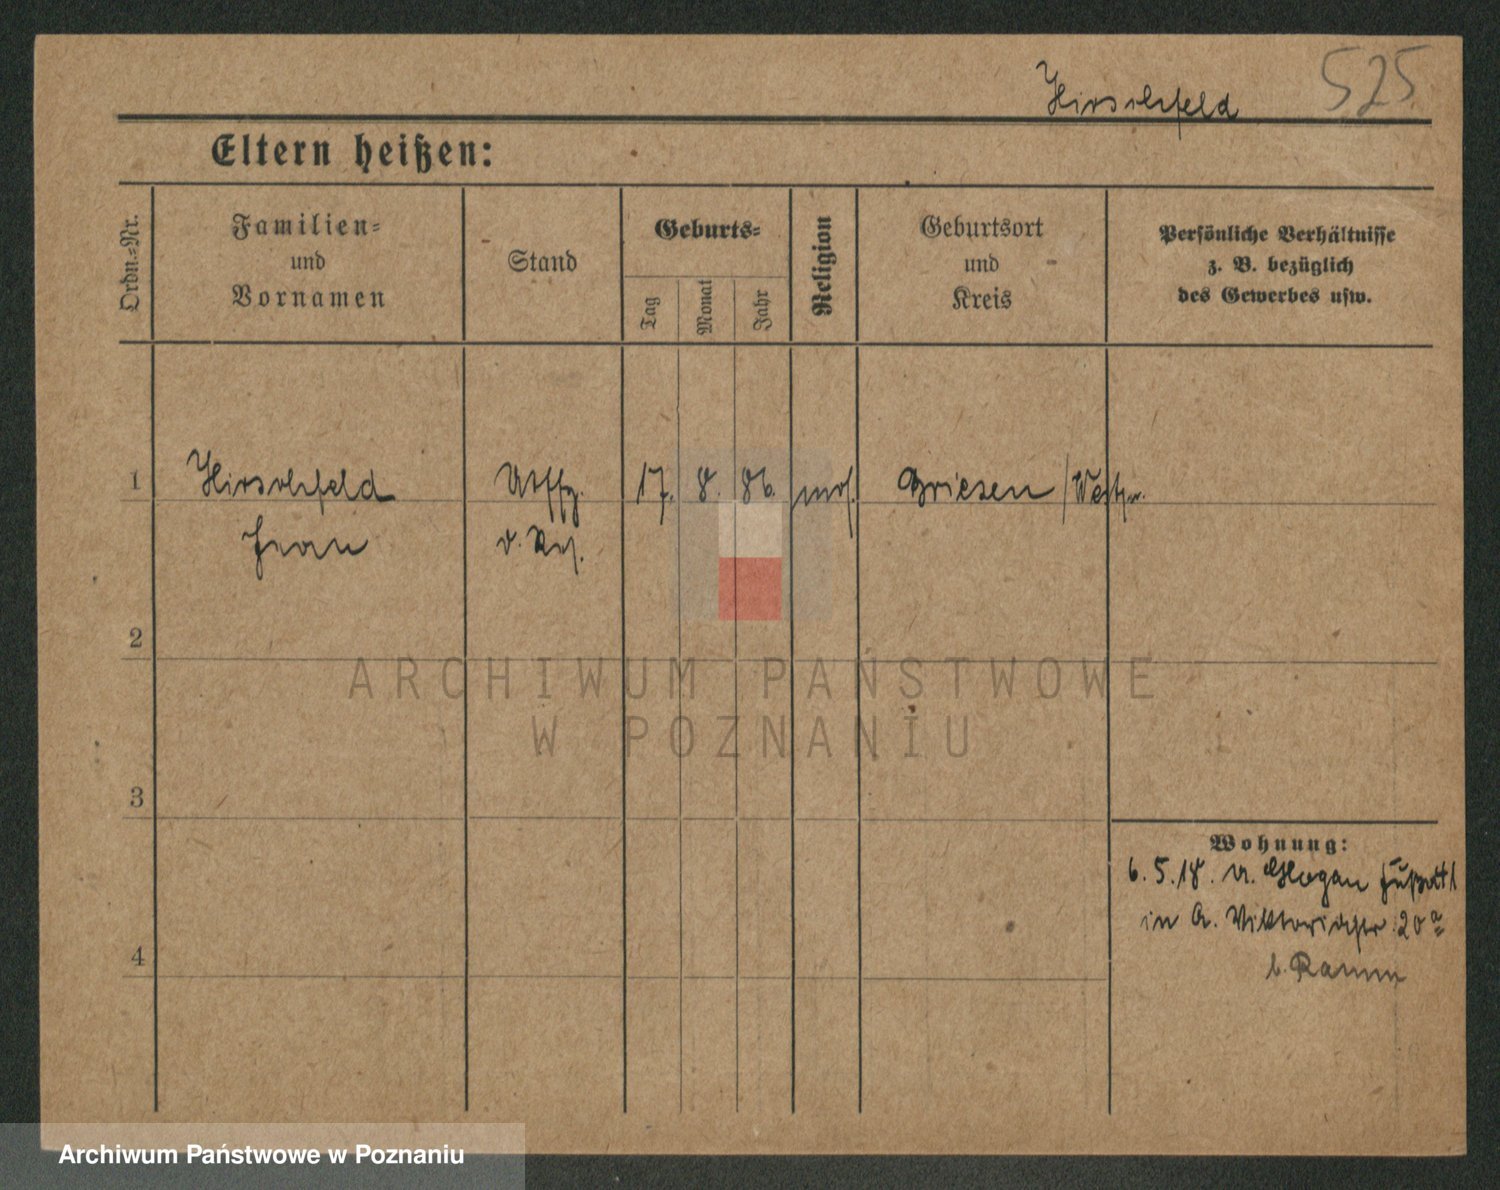 525
Hirschfeld
Eltern heißen:
Ordn.-Nr.
Familien-
und
Vornamen
Stand
Geburts-
Tag
Monat
Jahr
Religion
Geburtsort
und
Kreis
Persönliche Verhältnisse
z. B. bezüglich
des Gewerbes usw.
1
Hirschfeld
Utffz.
17. 8. 86. mos.
Briesen /Westpr.
d. Res.
2
3
4
Wohnung:
6. 5. 18. v. Glogau
in Viktoriastr. 20a
b. Ramm
ARCHIWUM PAŃSTWOWE
W POZNANIU
Archiwum Państwowe w Poznaniu